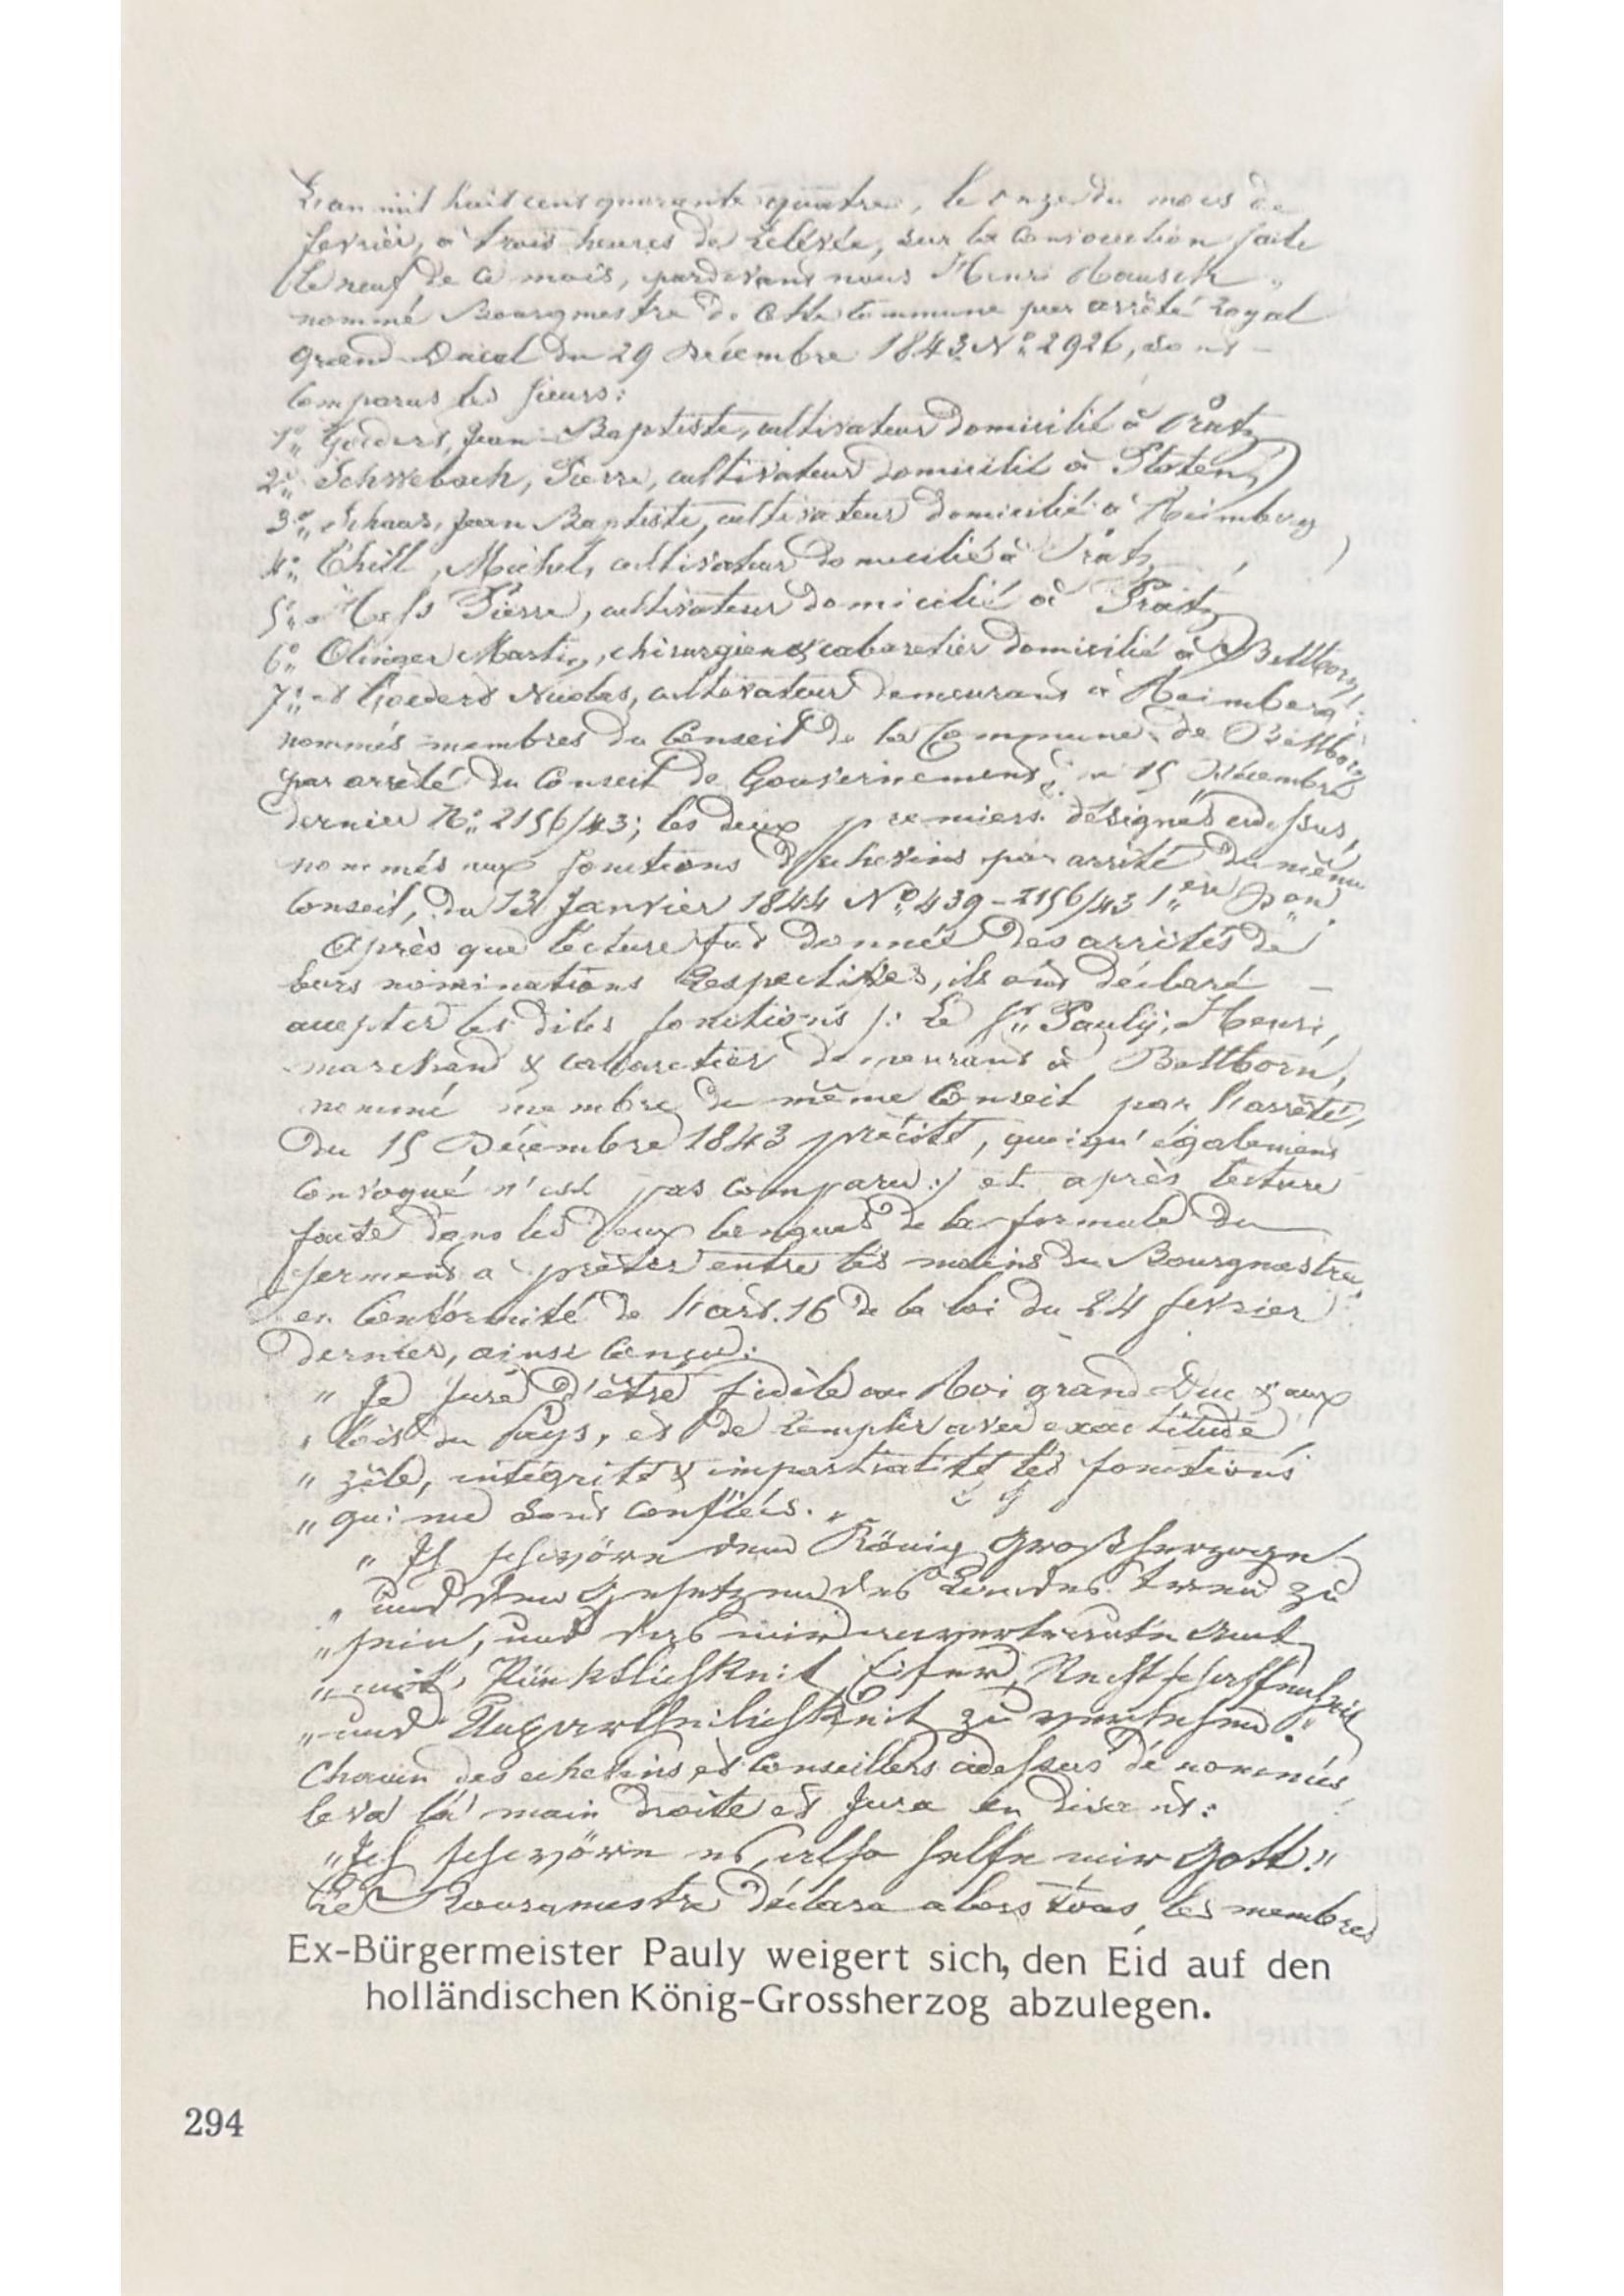 L'an mil huit cent quarante quatre, le onze du mois de
fevrier, à trois heures de relevée, sur la convocation faite
le neuf de ce mois, pardevant nous Henri
nommé Bourgmestre de cette Commune par arrêté royal
grand-Ducal du 29 Décembre 1843 Nº 2926, sont
comparus les sieurs:
1º Goeders, Jean-Baptiste, cultivateur domicilié à Pratz
2º Schwebach, Pierre, cultivateur domicilié à Platen,
3º Schaas, Jean Baptiste, cultivateur domicilié à Reimberg
4º Thill, Michel, cultivateur domicilié à Pratz,
5º Pierre, cultivateur domicilié à Pratz,
6º Olinger Martin, chirurgien & cabaretier domicilié à Bettborn,
7º et Goeders Nicolas, cultivateur demeurant à Reimberg;
nommés membres du Conseil de la Commune de Bettborn
par arrêté du Conseil de Gouvernement du 15 Décembre
dernier Nº 2156/43; les deux premiers désignés cidessus,
nommés aux fonctions d'echevins par arrêté du même
Conseil, du 13 Janvier 1844 Nº 439-2156/43 1ère Don.
Après que lecture fut donnée des arrêtés de
leurs nominations respectives, ils ont déclaré
accepter les dites fonctions /: Le Sr Pauly, Henri,
marchand & cabaretier demeurant à Bettborn,
nommé membre du même Conseil par l'arrêté,
du 15 Décembre 1843 précité, quoiqu'également
convoqué n'est pas comparu :/ et après lecture
faite dans les deux langues de la formule du
serment à prêter entre les mains du Bourgmestre,
en Conformité de l'art. 16 de la loi du 24 fevrier
dernier, ainsi conçu:
" Je jure d'être fidèle au Roi grand Duc & aux
" lois du pays, et de remplir avec exactitude
" zèle, intégrité & impartialité les fonctions
" qui me sont confiées. "
" Ich schwöre dem König Großherzogen
" und den Gesetzen des Landes treu zu
" sein, und das mir anvertraute Amt
" mit Pünktlichkeit, Eifer, Rechtschaffenheit
" und Unpartheilichkeit zu versehen."
Chacun des echevins et Conseillers cidessus dénommés,
leva la main droite et jura en disant:
" Ich schwöre es, also helfe mir Gott!"
Le Bourgmestre déclara alors tous les membres
Ex-Bürgermeister Pauly weigert sich, den Eid auf den
holländischen König-Grossherzog abzulegen.
294